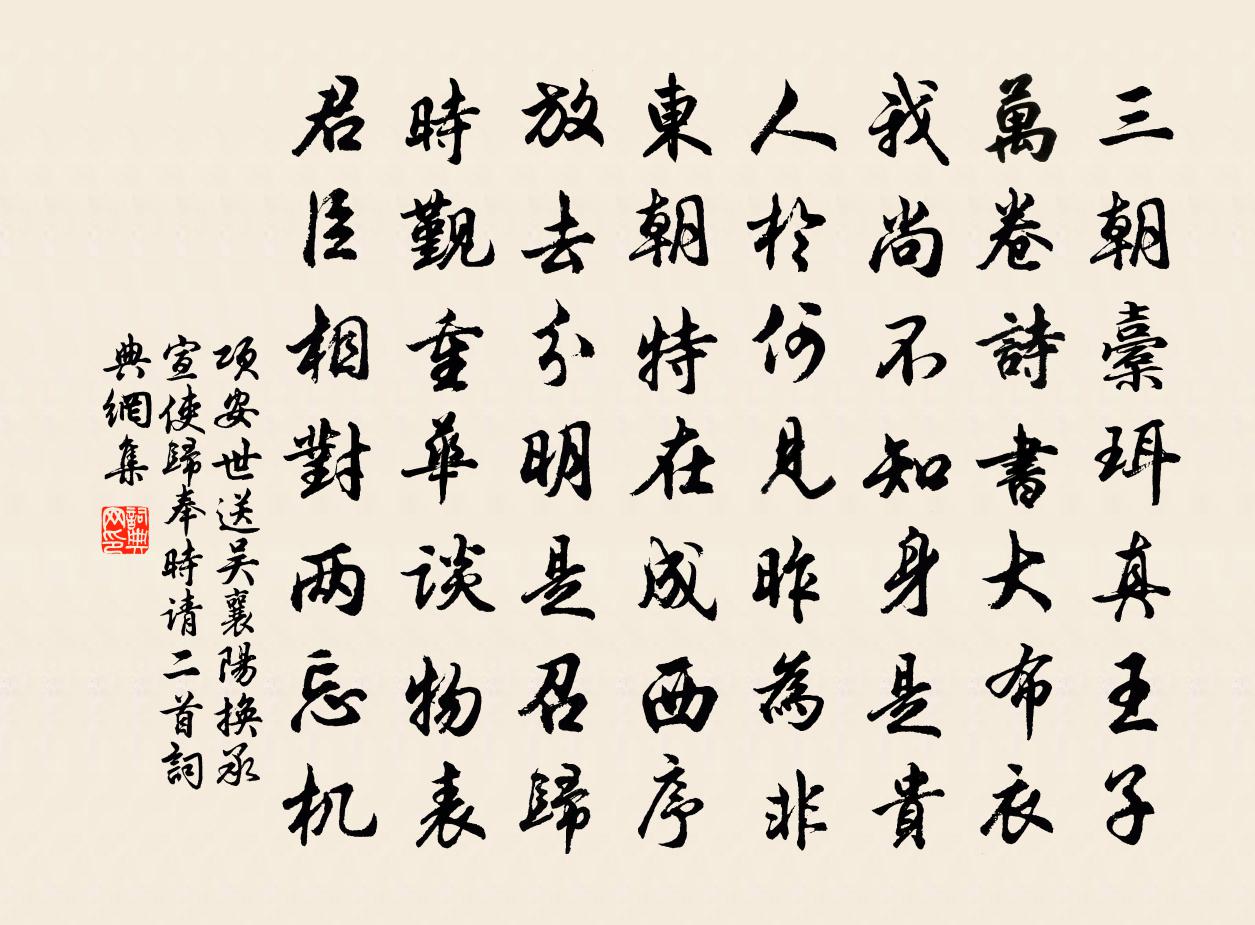 三朝橐珥真王子
萬卷詩書大布衣
我尚不知身是貴
人於何見昨為非
東朝特在成西序
放去分明是召歸
時覲重華談物表
君臣相對兩忘机
項安世送吴襄陽換承
宣使歸奉時请二首詞
典網集
詞典网印